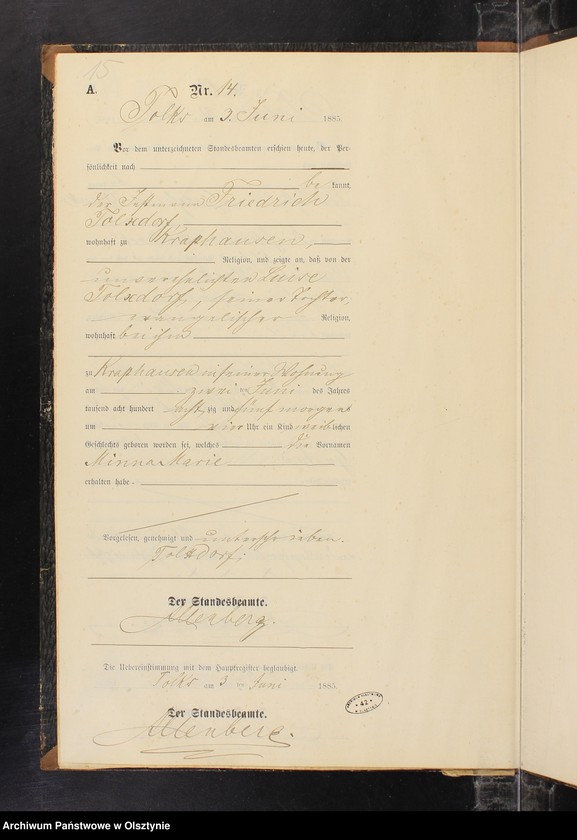 15
A. Nr. 14.
Tolks am 3. Juni 1885.
Vor dem unterzeichneten Standesbeamten erschien heute, der Per-
sönlichkeit nach
be kannt,
der Instmann Friedrich
Tolxdorf,
wohnhaft zu Kraphausen,
Religion, und zeigte an, daß von der
unverehelichten Luise
Tolxdorf, seiner Tochter,
evangelischer Religion,
wohnhaft bei ihm
zu Kraphausen in seiner Wohnung
am zwei ten Juni des Jahres
tausend acht hundert acht zig und fünf morgens
um vier Uhr ein Kind weib lichen
Geschlechts geboren worden sei, welches die Vornamen
Minna Marie
erhalten habe.
Vorgelesen, genehmigt und unterschrieben.
Tolxdorf.
Der Standesbeamte.
Altenberg.
Die Uebereinstimmung mit dem Hauptregister beglaubigt.
Tolks am 3 ten Juni 1885.
Der Standesbeamte.
Altenberg.
42
Archiwum Państwowe w Olsztynie